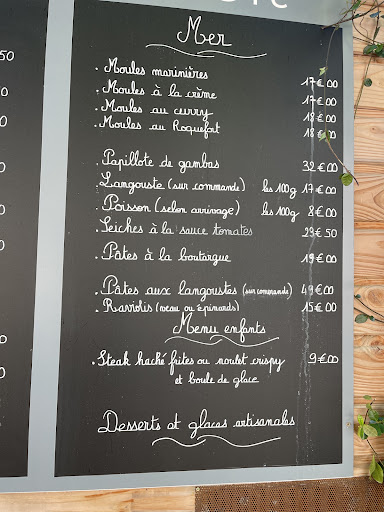 Mer
. Moules marinières 17€00
. Moules à la crème 17€00
. Moules au curry 18€00
. Moules au Roquefort 18€00
. Papillote de gambas 32€00
. Langouste (sur commande) les 100g 17€00
. Poisson (selon arrivage) les 100g 8€00
. Seiches à la sauce tomates 23€50
. Pâtes à la boutargue 19€00
. Pâtes aux langoustes (sur commande) 49€00
. Raviolis (veau ou épinards) 15€00
Menu enfants
. Steak haché frites ou poulet crispy 9€00
et boule de glace
Desserts et glaces artisanales